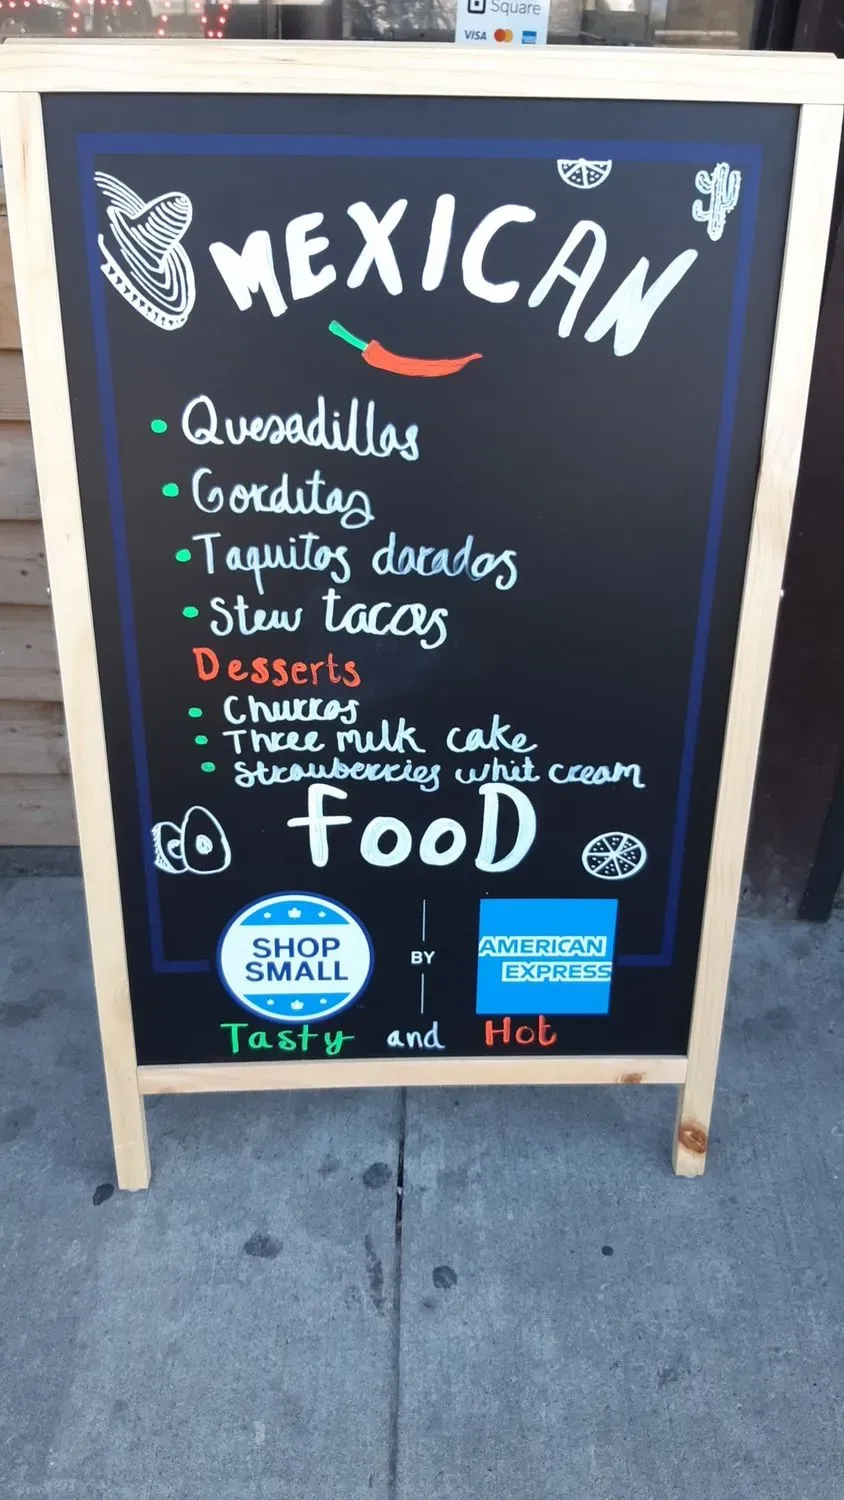 Square
VISA
MEXICAN
Quesadillas
Gorditas
Taquitos darados
Stew tacos
Desserts
Churros
Three milk cake
Strawberries whit cream
fooD
SHOP
SMALL
BY
AMERICAN
EXPRESS
Tasty and Hot